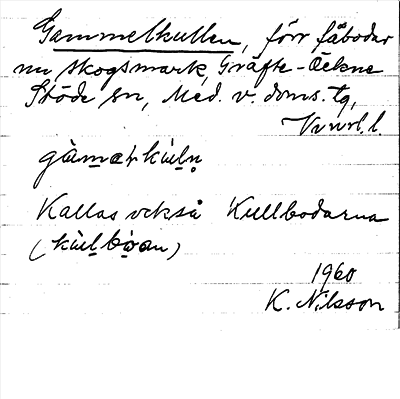 Gammelkullen, förr fäbodar
nu skogsmark, Gräfte-Öckne
Stöde sn, Med. v. doms. tg,
Vnrl. l.
gàmærkùlṇ
Kallas också Kullbodarna
(kùlbòan)
1960
K. Nilsson